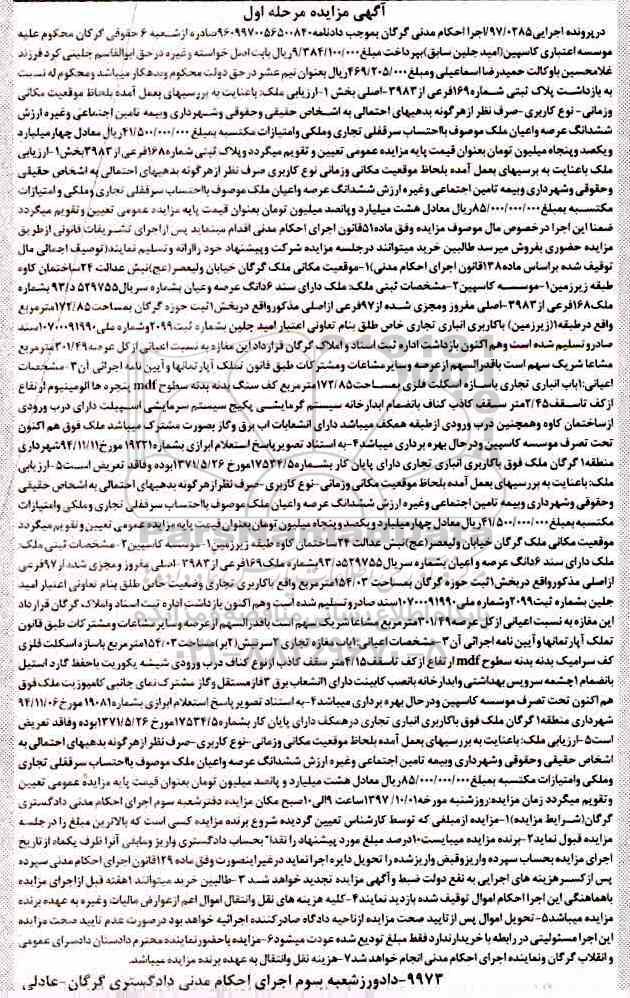 آگهی مزایده مرحله اول
درپرونده اجرایی۹۷/۰۲۸۵/اجرا احکام مدنی گرگان بموجب دادنامه۹۶۰۹۹۷۰۰۵۶۵۰۰۸۴۰صادره ازشعبه ۶ حقوقی گرگان محکوم علیه
موسسه اعتباری کاسپین(امید جلین سابق)بپرداخت مبلغ۹/۳۸۴/۱۰۰/۰۰۰ریال بابت اصل خواسته وغیره درحق ابوالقاسم جلینی کرد فرزند
غلامحسین باوکالت حمیدرضا اسماعیلی ومبلغ۴۶۹/۲۰۵/۰۰۰ریال بعنوان نیم عشر در حق دولت محکوم وبدهکار میباشد ومحکوم له نسبت
به بازداشت پلاک ثبتی شماره۱۶۹فرعی از۳۹۸۳-اصلی بخش ۱-ارزیابی ملک: باعنایت به بررسیهای بعمل آمده بلحاظ موقعیت مکانی
وزمانی- نوع کاربری-صرف نظر ازهرگونه بدهیهای احتمالی به اشخاص حقیقی وحقوقی وشهرداری وبیمه تامین اجتماعی وغیره ارزش
ششدانگ عرصه واعیان ملک موصوف بااحتساب سرقفلی تجاری وملکی وامتیازات مکتسبه بمبلغ۴۱/۵۰۰/۰۰۰/۰۰۰ریال معادل چهارمیلیارد
ویکصد وپنجاه میلیون تومان بعنوان قیمت پایه مزایده عمومی تعیین و تقویم میگردد وپلاک ثبتی شماره۱۶۸فرعی از۳۹۸۳بخش۱-ارزیابی
ملک باعنایت به برسیهای بعمل آمده بلحاظ موقعیت مکانی وزمانی نوع کاربری صرف نظر ازهرگونه بدهیهای احتمالی به اشخاص حقیقی
وحقوقی وشهرداری وبیمه تامین اجتماعی وغیره ارزش ششدانگ عرصه واعیان ملک موصوف بااحتساب سرقفلی تجاری وملکی و امتیازات
مکتسبه بمبلغ۸۵/۰۰۰/۰۰۰/۰۰۰ریال معادل هشت میلیارد و پانصد میلیون تومان بعنوان قیمت پایه مزایده عمومی تعیین وتقویم میگردد
ضمنا این اجرا درخصوص مال موصوف مزایده وفق ماده۵۱قانون اجرای احکام مدنی اقدام مینماید پس ازاجرای تشریفات قانونی ازطریق
مزایده حضوری بفروش میرسد طالبین خرید میتوانند درجلسه مزایده شرکت وپیشنهاد خود راارائه وتسلیم نمایند(توصیف اجمالی مال
توقیف شده براساس ماده۱۳۸قانون اجرای احکام مدنی)۱-موقعیت مکانی ملک گرگان خیابان ولیعصر(عج)نبش عدالت ۲۴ساختمان کاوه
طبقه زیرزمین۱-موسسه کاسپین۲-مشخصات ثبتی ملک: ملک دارای سند ۶دانگ عرصه وعیان بشماره سریال۵۲۹۷۵۵د/۹۳ بشماره
ملک۱۶۸فرعی از۳۹۸۳-اصلی مفروز ومجزی شده از۹۷فرعی ازاصلی مذکورواقع دربخش۱ثبت حوزه گرگان بمساحت۱۷۲/۸۵مترمربع
واقع درطبقه۱(زیرزمین) باکاربری انباری تجاری خاص طلق بنام تعاونی اعتبار امید جلین بشماره ثبت۲۰۹۹وشماره ملی۱۰۷۰۰۰۹۱۹۹۰سند
صادروتسلیم شده است وهم اکنون بازداشت اداره ثبت اسناد و املاک گرگان قرارداد این مغازه به نسبت اعیانی از کل عرصه۳۰۱/۴۹مترمربع
مشاعا شریک سهم است باقدرالسهم ازعرصه وسایرمشاعات ومشترکات طبق قانون تملک آپارتمانها و آیین نامه اجرائی آن۳-مشخصات
اعیانی:۱باب انباری تجاری باسازه اسکلت فلزی بمساحت۱۷۲/۸۵مترمربع کف سنگ بدنه بدنه سطوح mdf پنجره ها الومینیوم ارتفاع
ازکف تاسقف۲/۴۵متر سقف کاذب کناف بانضمام ابدارخانه سیستم گرمایشی پکیج سیستم سرمایشی اسپیلت دارای درب ورودی
ازساختمان کاوه وهمچنین درب ورودی ازطبقه همکف میباشد دارای انشعابات اب برق وگاز بصورت مشترک میباشد ملک فوق هم اکنون
تحت تصرف موسسه کاسپین ودرحال بهره برداری میباشد۴-به استناد تصویرپاسخ استعلام ابرازی بشماره۱۹۲۲۱مورخ۹۴/۱۱/۱۱شهرداری
منطقه۱ گرگان ملک فوق باکاربری انباری تجاری دارای پایان کار بشماره۱۷۵۳۴/۵مورخ ۱۳۷۱/۵/۲۶بوده وفاقد تعریض است۵-ارزیابی
ملک: باعنایت به بررسیهای بعمل آمده بلحاظ موقعیت مکانی وزمانی-نوع کاربری-صرف نظرازهرگونه بدهیهای احتمالی به اشخاص حقیقی
وحقوقی وشهرداری وبیمه تامین اجتماعی وغیره ارزش ششدانگ عرصه واعیان ملک موصوف بااحتساب سرقفلی تجاری وملکی وامتیازات
مکتسبه بمبلغ۴۱/۵۰۰/۰۰۰/۰۰۰ریال معادل چهارمیلیارد ویکصد وپنجاه میلیون تومان بعنوان قیمت پایه مزایده عمومی تعیین و تقویم میگردد
موقعیت مکانی ملک گرگان خیابان ولیعصر(عج)نبش عدالت ۲۴ساختمان کاوه طبقه زیرزمین۱-موسسه کاسپین۲-مشخصات ثبتی ملک:
ملک دارای سند ۶دانگ عرصه و اعیان بشماره سریال۵۲۹۷۵۵د/۹۳بشماره ملک۱۶۹فرعی از۳۹۸۳-اصلی مفروز ومجزی شده از۹۷فرعی
ازاصلی مذکورواقع دربخش۱ثبت حوزه گرگان بمساحت ۱۵۴/۰۳مترمربع واقع باکاربری تجاری وضعیت خاص طلق بنام تعاونی اعتبار امید
جلین بشماره ثبت۲۰۹۹وشماره ملی۱۰۷۰۰۰۹۱۹۹۰سند صادروتسلیم شده است وهم اکنون بازداشت اداره ثبت اسناد واملاک گرگان قرارداد
این مغازه به نسبت اعیانی از کل عرصه۳۰۱/۴۹مترمربع مشاعا شریک سهم است باقدرالسهم ازعرصه وسایرمشاعات ومشترکات طبق قانون
تملک آپارتمانها و آیین نامه اجرائی آن۳-مشخصات اعیانی:۱باب مغازه تجاری ۲سرنبش(۲بر)بمساحت۱۵۴/۰۳مترمربع باسازه اسکلت فلزی
کف سرامیک بدنه بدنه سطوح mdf ارتفاع از کف تاسقف۴/۱۵متر سقف کاذب ازنوع کناف درب ورودی شیشه یکوریت باحفظ گارد استیل
بانضمام ۱چشمه سرویس بهداشتی وابدارخانه بانصب کابینت دارای ۱انشعاب برق ۳فازمستقل وگاز مشترک نمای جانبی کامپوزیت ملک فوق
هم اکنون تحت تصرف موسسه کاسپین ودرحال بهره برداری میباشد۴-به استناد تصویر پاسخ استعلام ابرازی بشماره۱۹۰۸۱ مورخ۹۴/۱۱/۰۶
شهرداری منطقه۱ گرگان ملک فوق باکاربری انباری تجاری درهمکف دارای پایان کار بشماره۱۷۵۳۴/۵مورخ ۱۳۷۱/۵/۲۶بوده وفاقد تعریض
است۵-ارزیابی ملک: باعنایت به بررسیهای بعمل آمده بلحاظ موقعیت مکانی وزمانی-نوع کاربری-صرف نظر ازهرگونه بدهیهای احتمالی به
اشخاص حقیقی وحقوقی وشهرداری وبیمه تامین اجتماعی وغیره ارزش ششدانگ عرصه واعیان ملک موصوف بااحتساب سرقفلی تجاری
وملکی وامتیازات مکتسبه بمبلغ۸۵/۰۰۰/۰۰۰/۰۰۰ریال معادل هشت میلیارد و پانصد میلیون تومان بعنوان قیمت پایه مزایده عمومی تعیین
وتقویم میگردد زمان مزایده:روزشنبه مورخه۱۳۹۷/۱۰/۰۱ساعت ۹الی۱۰صبح مکان مزایده دفترشعبه سوم اجرای احکام مدنی دادگستری
گرگان(شرایط مزایده)۱-مزایده ازمبلغی که توسط کارشناس تعیین گردیده شروع برنده مزایده کسی است که بالاترین مبلغ را درجلسه
مزایده قبول نماید۲-برنده مزایده میبایست۱۰درصد مبلغ مورد پیشنهاد را نقدا" بحساب دادگستری واریز ومابقی آنرا ظرف یکماه از تاریخ
اجرای مزایده بحساب سپرده واریزوقبض واریزشده را تحویل دایره اجرا نماید درغیراینصورت وفق ماده ۱۲۹قانون اجرای احکام مدنی سپرده
پس ازکسرهزینه های اجرایی به نفع دولت ضبط وآگهی مزایده تجدید خواهد شد ۳-طالبین خرید میتوانند ۱هفته قبل ازاجرای مزایده
باهماهنگی این اجرا احکام اموال توقیف شده بازدید نمایند۴-کلیه هزینه های نقل وانتقال اموال اعم ازعوارض مالیات وغیره به عهده برنده
مزایده میباشد۵-تحویل اموال پس ازتایید صحت مزایده ازناحیه دادگاه صادرکننده اجرائیه خواهد بود درصورت عدم تایید صحت مزایده
این اجرا مسئولیتی در رابطه با خریدارندارد فقط مبلغ تودیع شده عودت میشود۶-مزایده باحضورنماینده محترم دادستان دادسرای عمومی
و انقلاب گرگان ونماینده اجرای احکام مدنی انجام خواهد شد۷-هزینه نقل وانتقال به عهده برنده مزایده میباشد.
۹۹۷۳-دادورزشعبه سوم اجرای احکام مدنی دادگستری گرگان-عادلی